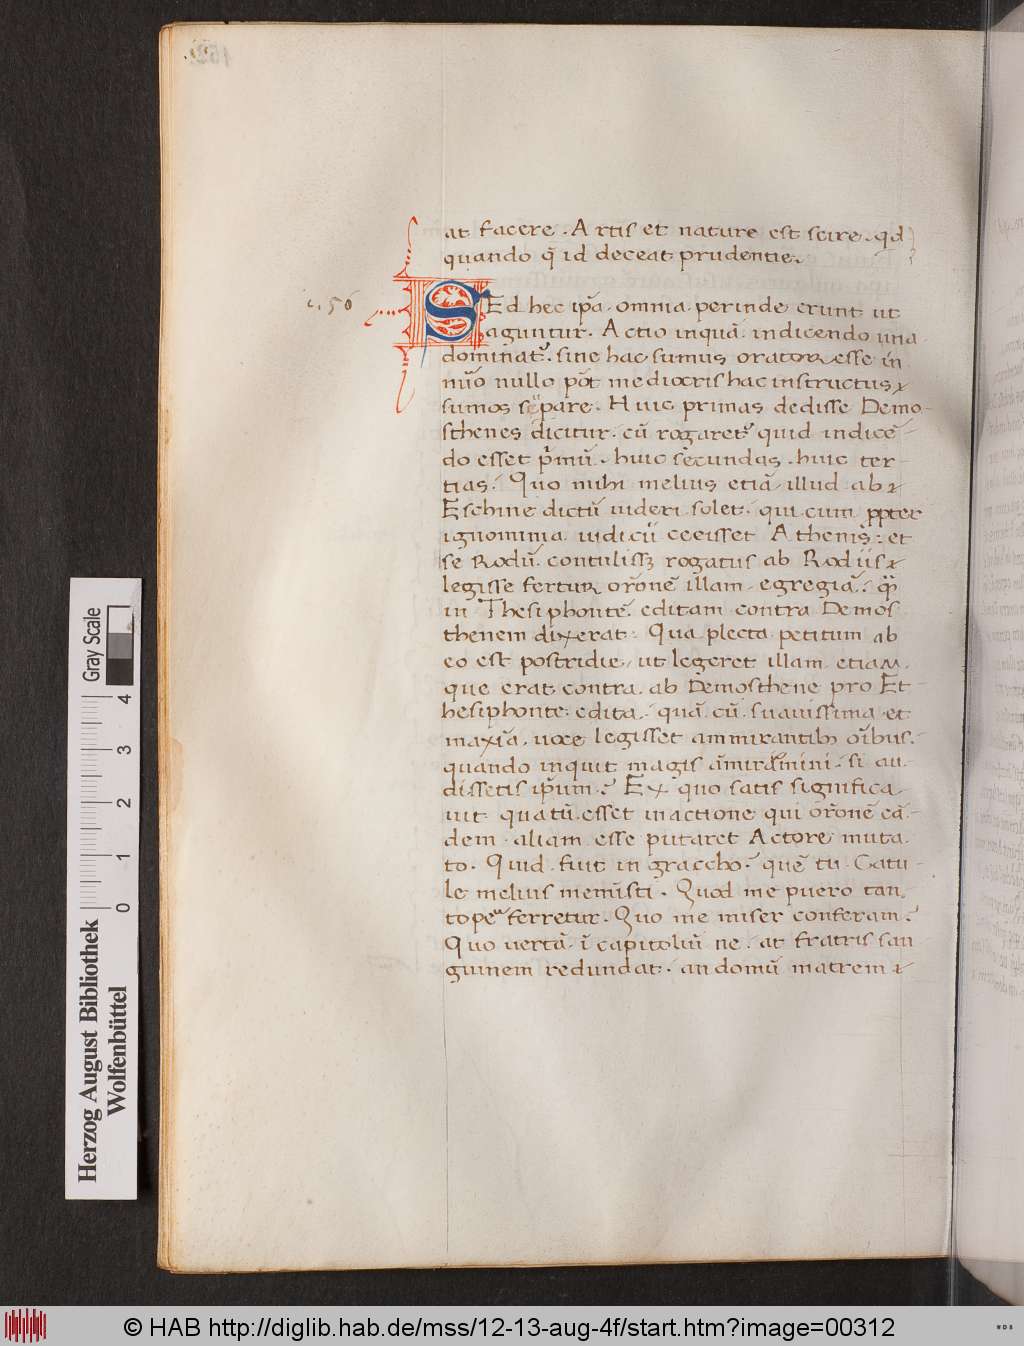 at facere . Artis et nature est scire . qd
quando q̄ id deceat prudentie .
c. 56
SEd hec ip̄a . omnia . perinde erunt ut
aguntur . Actio inquā . indicendo una .
dominat᷒ . sine hac sumus orator esse in
nullo pōt mediocris hac instructus
sumos separe . Huic primas dedisse Demo-
sthenes dicitur . cū rogaret᷒ quid indicē-
do esset p̄mū . huic secundas . huic ter-
tias . Quo mihi melius etiā . illud ab
Eschine dictū uideri solet . qui cum ppter
ignominia iudicii ceeisset Athenis : et
se Rodū contulissꝫ rogatus ab Rodiis
legisse fertur or̄onē illam . egregiā . q̄
in Thesiphontē . editam contra Demos
thenem dixerat : Qua plecta petitum ab
eo est postridie , ut legeret illam . etiam .
que erat contra . ab Demosthene pro Et-
hesiphonte . edita . quā cū . suauissima . et
maxīa . uoce legisset ammirantibꝫ oībus .
quando inquit magis āmiramini . si au-
dissetis ip̄um . ? Ex quo satis significa
uit quātū . esset in actione qui or̄onē eā .
dem . aliam esse putaret Actore muta-
to . Quid . fuit in graccho . ? quē tu . Catu-
le melius memīsti . Quod me puero tan .
to pe ferretur . Quo me miser conferam . ?
Quo uertā . ī capitoliū ne . at fratris san
guinem redundat . an domū matrem
Herzog August Bibliothek
Wolfenbüttel
0 1 2 3 4
Gray Scale
© HAB http://diglib.hab.de/mss/12-13-aug-4f/start.htm?image=00312